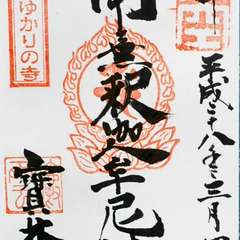 平成二十八年三月
南無釈迦牟尼
ゆかりの寺
寶林